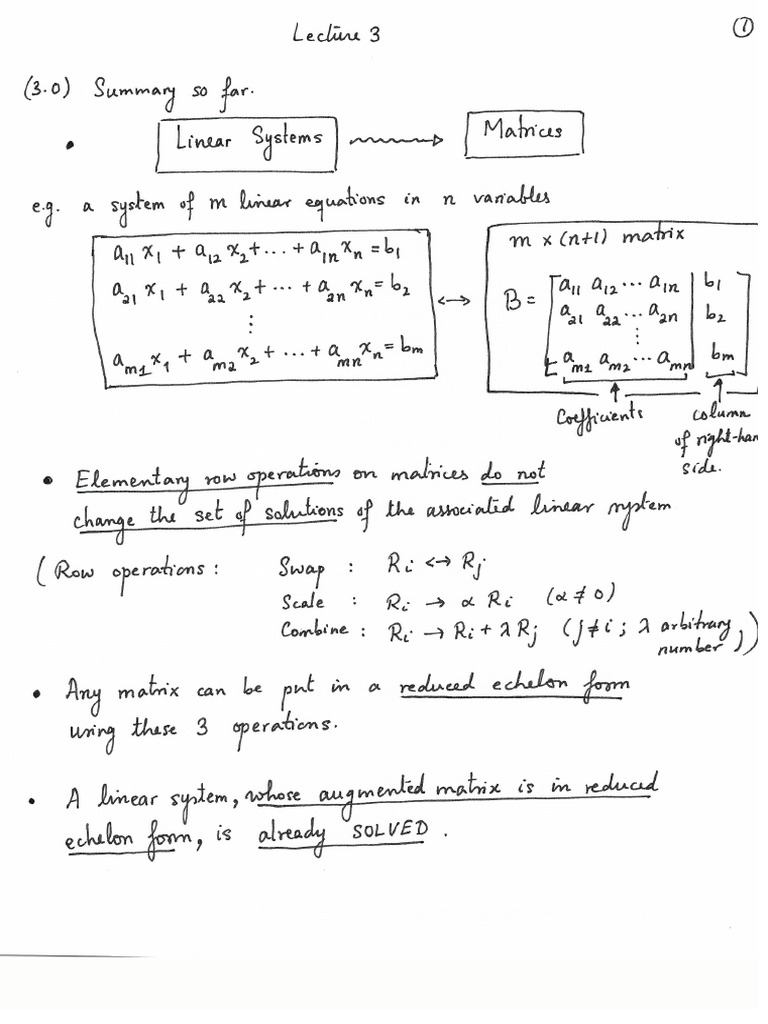 Lecture 3
①
(3.0) Summary so far.
• Linear Systems ⟿ Matrices
e.g. a system of m linear equations in n variables
a₁₁ x₁ + a₁₂ x₂ + ... + a₁ₙ xₙ = b₁
a₂₁ x₁ + a₂₂ x₂ + ... + a₂ₙ xₙ = b₂
⋮
aₘ₁ x₁ + aₘ₂ x₂ + ... + aₘₙ xₙ = bₘ
↔
m × (n+1) matrix
B = [ a₁₁ a₁₂ ... a₁ₙ | b₁
a₂₁ a₂₂ ... a₂ₙ | b₂
⋮
aₘ₁ aₘ₂ ... aₘₙ | bₘ ]
Coefficients
column
of right-han
side.
• Elementary row operations on matrices do not
change the set of solutions of the associated linear system
(Row operations : Swap : Rᵢ ↔ Rⱼ
Scale : Rᵢ → α Rᵢ (α ≠ 0)
Combine : Rᵢ → Rᵢ + λ Rⱼ (j ≠ i ; λ arbitrary
number))
• Any matrix can be put in a reduced echelon form
using these 3 operations.
• A linear system, whose augmented matrix is in reduced
echelon form, is already SOLVED.